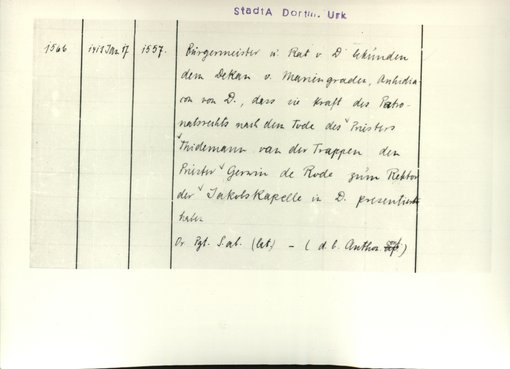 StadtA Dortm. Urk
1566 1418 Jan. 17 1557. Bürgermeister u. Rat v. D. bekunden
dem Dekan v. Mariengraden, Archidia-
con von D., dass sie kraft des Patro-
natsrechts nach dem Tode des Priesters
Thidemann van der Trappen den
Priester Gerwin de Rode zum Rektor
der Jakobskapelle in D. praesentiert
haben
Or. Pgt. (lat.) – (d. d. Anthon.)